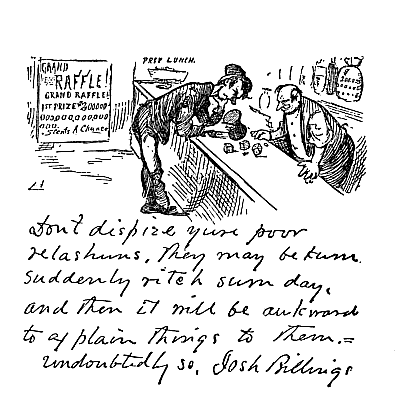 GRAND
RAFFLE!
GRAND RAFFLE!
1ST PRIZE $20000
5cents A Chance
FREE LUNCH.
Don't dispize yure poor
relashuns, they may be kum
suddenly ritch sum day,
and then it will be aukward
to explain things to them.=
undoubtedly so, Josh Billings